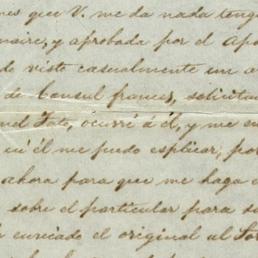 nes que V. me da nada teng
naire, y aprobada por el Apo
do visto casualmente un a
de Consul frances, solicitu
ocurrí á él, y me en
en él me pudo esplicar, por
ahora para que me haga
sobre el particular para su
enviado el original al Sor